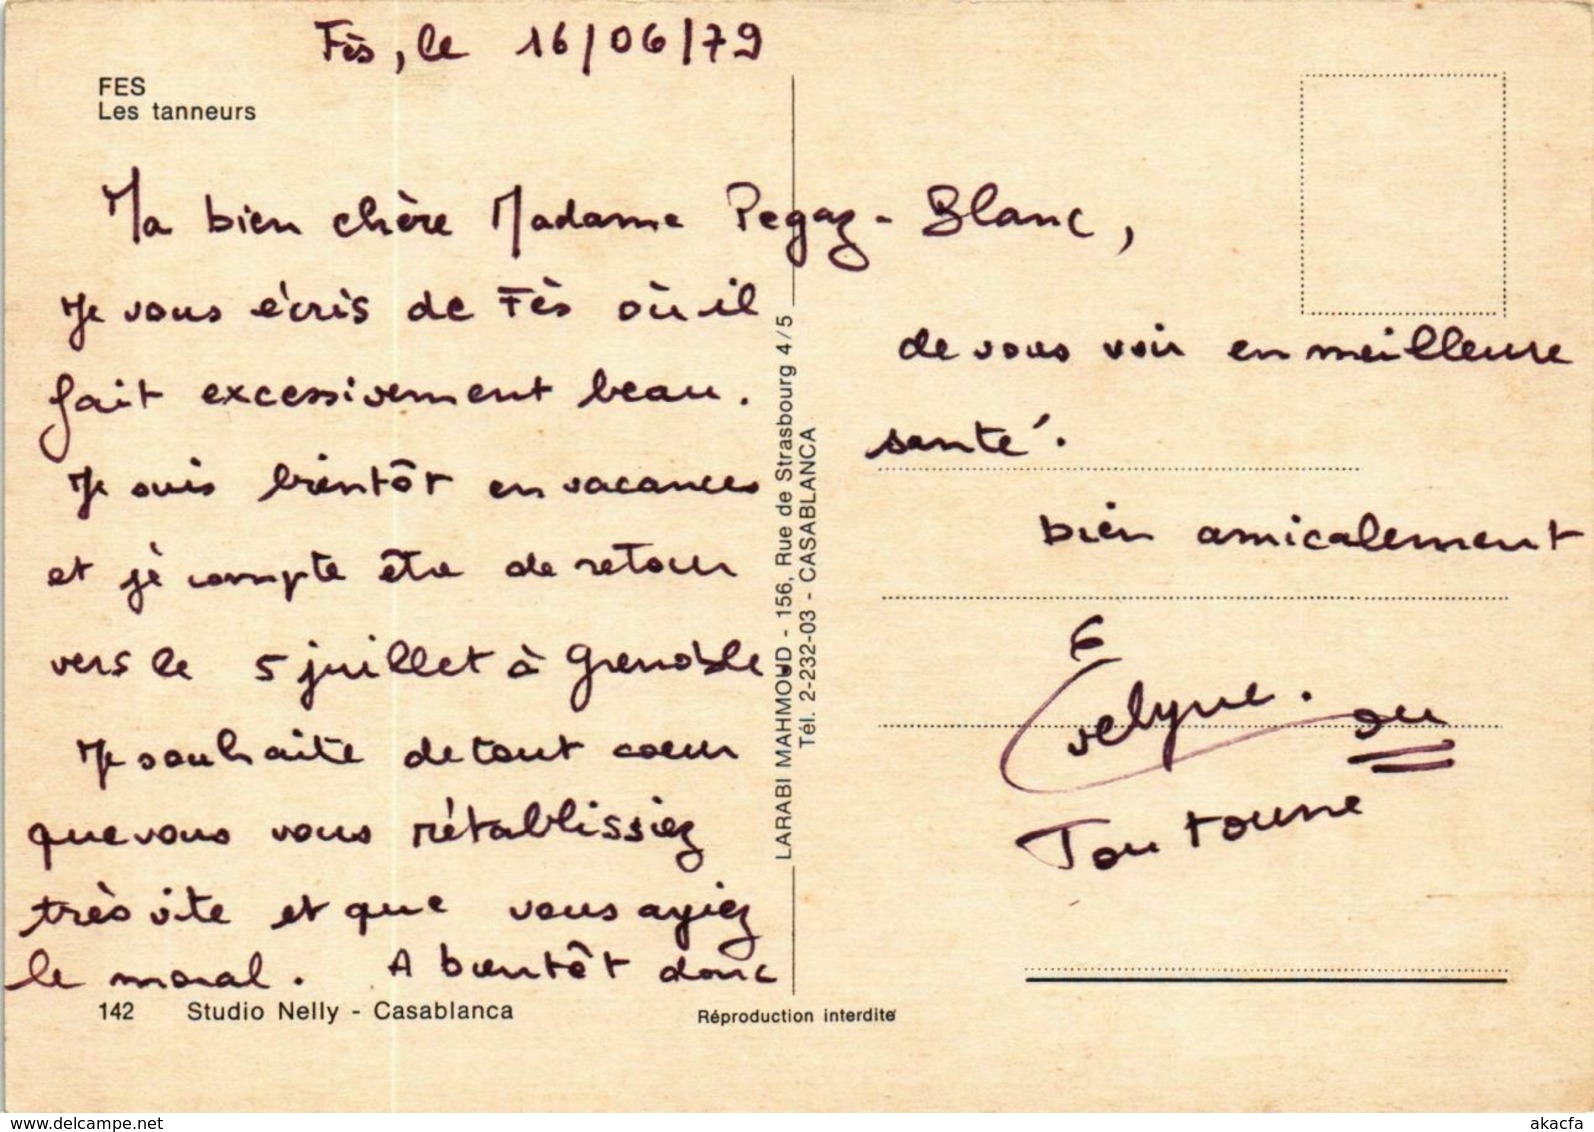 Fès, le 16/06/79
FES
Les tanneurs
Ma bien chère Madame Pegaz-Blanc,
Je vous écris de Fès où il
fait excessivement beau.
Je suis bientôt en vacances
et je compte être de retour
vers le 5 juillet à Grenoble.
Je souhaite de tout coeur
que vous vous rétablissiez
très vite et que vous ayiez
le moral. A bientôt donc
142 Studio Nelly - Casablanca
Réproduction interdite
LARABI MAHMOUD - 156, Rue de Strasbourg 4/5
Tél. 2-232-03 - CASABLANCA
de vous voir en meilleure
santé.
bien amicalement
Evelyne. ou
Toutoune
www.delcampe.net
akacfa